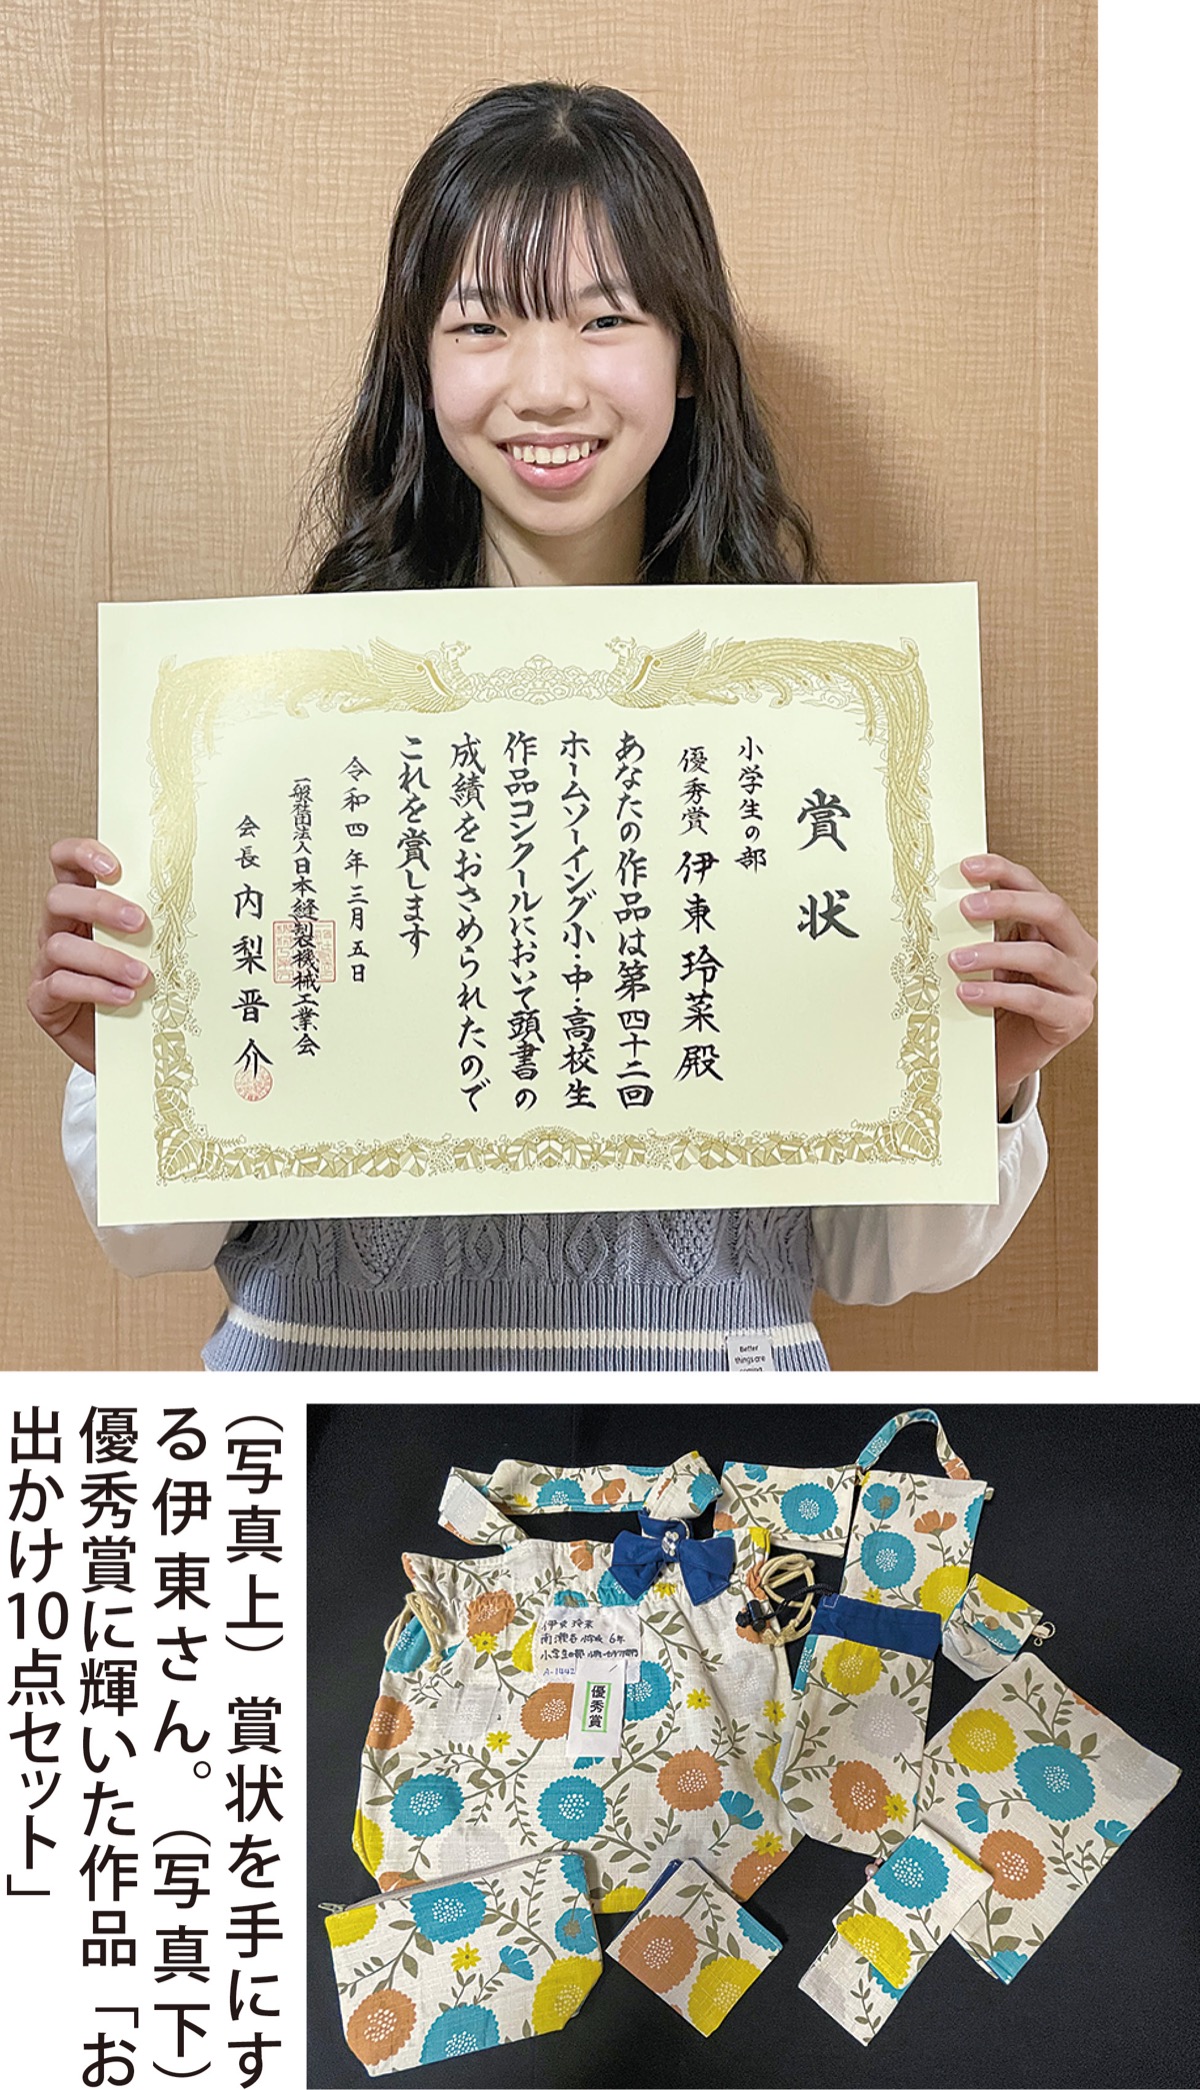 賞状
小学生の部
優秀賞 伊東玲菜殿
あなたの作品は第四十二回
ホームソーイング小・中・高校生
作品コンクールにおいて頭書の
成績をおさめられたので
これを賞します
令和四年三月五日
一般社団法人日本縫製機械工業会
会長 内梨晋介
Better
things are
coming
伊東 玲菜
南瀬谷小学校 6年
小学生の部
A-1442
優秀賞
（写真上）賞状を手にす
る伊東さん。（写真下）
優秀賞に輝いた作品「お
出かけ10点セット」